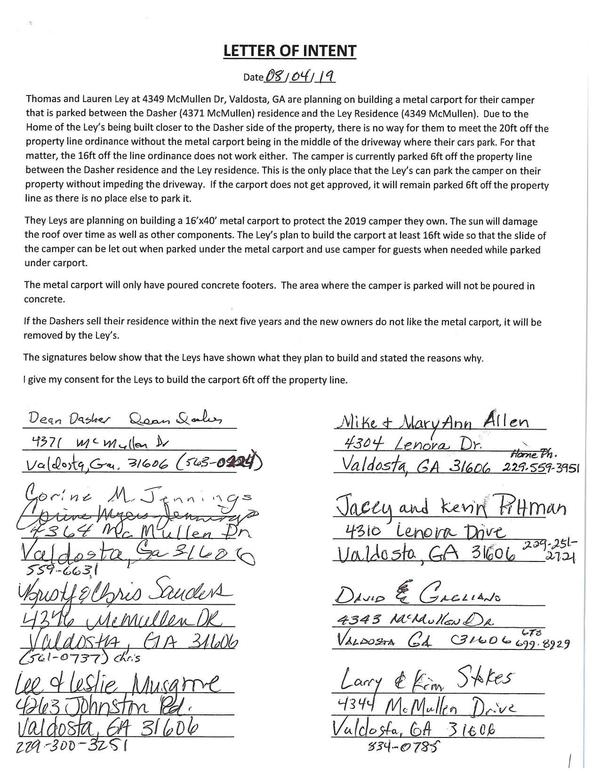 LETTER OF INTENT
Date 08/04/19
Thomas and Lauren Ley at 4349 McMullen Dr, Valdosta, GA are planning on building a metal carport for their camper
that is parked between the Dasher (4371 McMullen) residence and the Ley Residence (4349 McMullen). Due to the
Home of the Ley's being built closer to the Dasher side of the property, there is no way for them to meet the 20ft off the
property line ordinance without the metal carport being in the middle of the driveway where their cars park. For that
matter, the 16ft off the line ordinance does not work either. The camper is currently parked 6ft off the property line
between the Dasher residence and the Ley residence. This is the only place that the Ley's can park the camper on their
property without impeding the driveway. If the carport does not get approved, it will remain parked 6ft off the property
line as there is no place else to park it.
They Leys are planning on building a 16'x40' metal carport to protect the 2019 camper they own. The sun will damage
the roof over time as well as other components. The Ley's plan to build the carport at least 16ft wide so that the slide of
the camper can be let out when parked under the metal carport and use camper for guests when needed while parked
under carport.
The metal carport will only have poured concrete footers. The area where the camper is parked will not be poured in
concrete.
If the Dashers sell their residence within the next five years and the new owners do not like the metal carport, it will be
removed by the Ley's.
The signatures below show that the Leys have shown what they plan to build and stated the reasons why.
I give my consent for the Leys to build the carport 6ft off the property line.
Dean Dasher Dean Dasher
4371 McMullen Dr
Valdosta, Ga. 31606 (563-0224)
Corine M. Jennings
Corine Myers Jennings
4364 McMullen Dr
Valdosta, Ga 31606
559-6631
Kristy & Chris Sanders
4376 McMullen DR
Valdosta, GA 31606
(561-0737) chris
Lee & Leslie Musgrove
4263 Johnston Rd.
Valdosta, GA 31606
229-300-3251
Mike & MaryAnn Allen
4304 Lenora Dr.
Home Ph.
Valdosta, GA 31606 229-559-3951
Jacey and Kevin Pittman
4310 Lenora Drive
Valdosta, GA 31606 229-251-
2721
DAVID E GAGLIANO
4343 McMULLEN DR
VALDOSTA GA 31606 699-8929
Larry & Kim Stokes
4344 McMullen Drive
Valdosta, GA 31606
834-0785
1